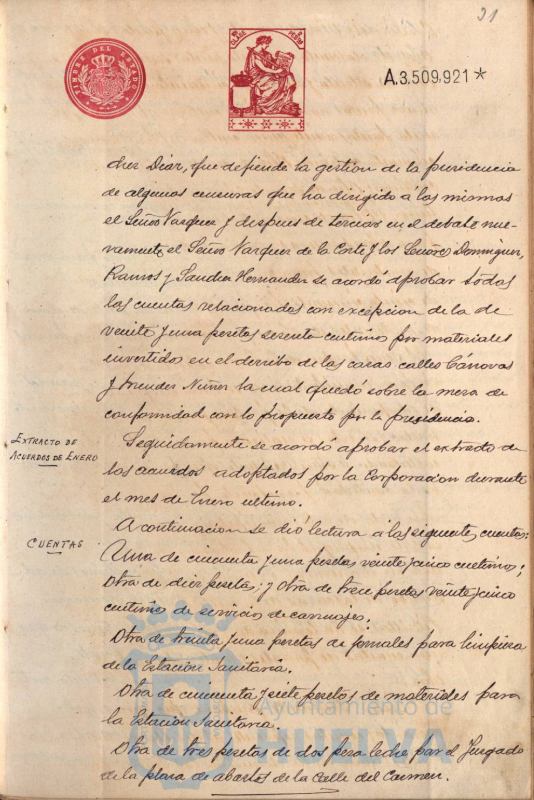 21
TIMBRE DEL ESTADO
A.3,509,921*
chez Diaz, que defiende la gestion de la presidencia
de algunas censuras que ha dirigido á las mismas
el Señor Vazquez y despues de terciar en el debate nue-
vamente el Señor Vazquez de la Corte y los Señores Dominguez,
Ramos y Sanchez Hernandez se acordó aprobar todas
las cuentas relacionadas con excepcion de la de
veinte y una pesetas sesenta centimos por materiales
invertido en el derribo de las casas calles Cánovas
y Mendez Nuñez la cual quedó sobre la mesa de
conformidad con lo propuesto por la presidencia.
EXTRACTO DE
ACUERDOS DE ENERO
Seguidamente se acordó aprobar el extracto de
los acuerdos adoptados por la Corporacion durante
el mes de Enero ultimo.
CUENTAS
A continuacion se dió lectura á las siguientes cuentas:
Una de cincuenta y una pesetas veinte y cinco centimos;
Otra de diez pesetas; y otra de trece pesetas veinte y cinco
centimos de servicio de carruajes.
Otra de treinta y una pesetas de jornales para limpieza
de la Estacion Sanitaria.
Otra de cincuenta y siete pesetas de materiales para
la Estacion Sanitaria.
Otra de tres pesetas de dos pesa leche par el Juzgado
de la plaza de abastos de la Calle del Carmen.
Ayuntamiento de
HUELVA